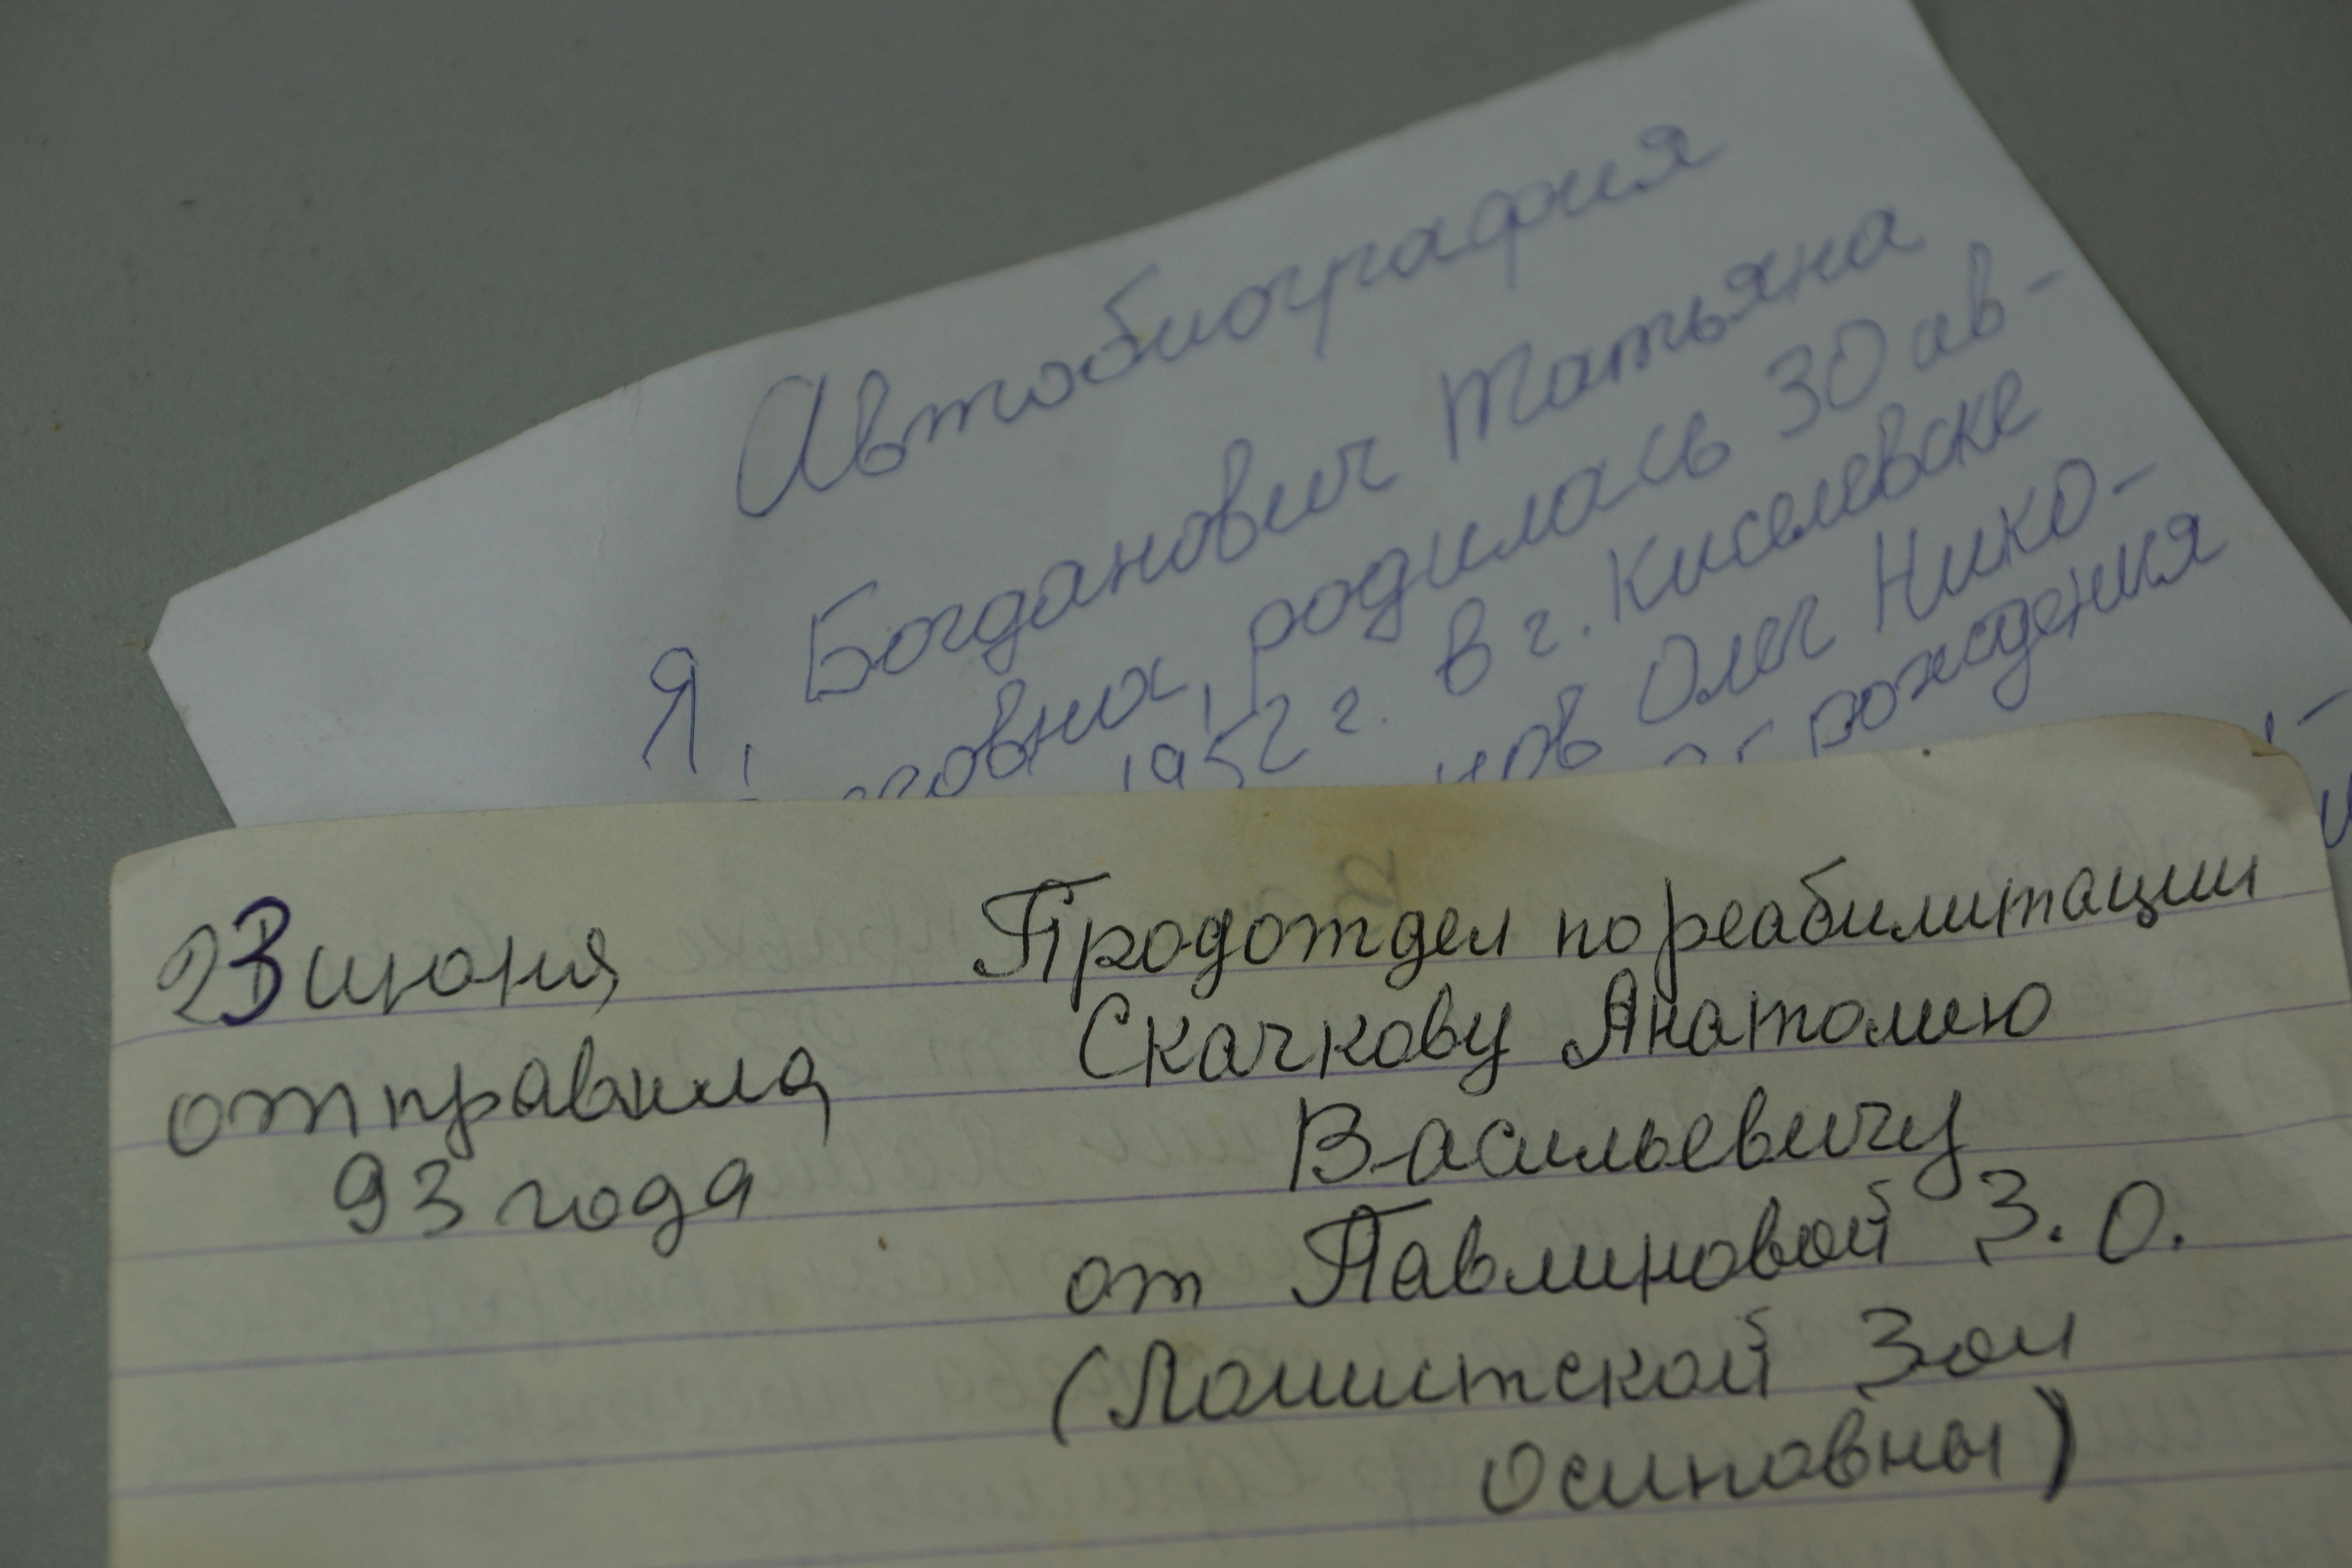 Автобиография
Я, Богданович Татьяна
родилась 30 ав-
1952 г. в г. Киселевске
Олег Нико-
рождения
23 июня
отправила
93 года
Продотждел по реабилитации
Скачкову Анатолию
Васильевичу
от Павлиновой З. О.
(Ломитской Зои
Осиповны)